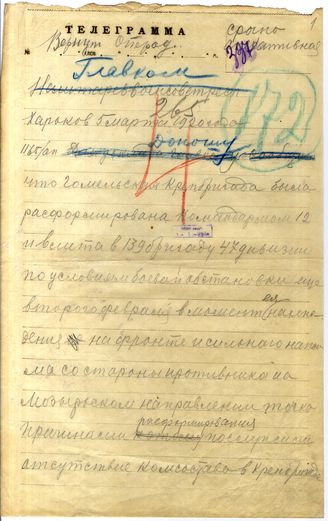 1
ТЕЛЕГРАММА
срочно
оперативная
Вернут Операд.
№
Главком
265
Харьков 5 марта 1920 года
1165/оп Доношу
что Гомельский Крепбригада была
расформирована Командармом 12
и влита в 139 бригаду 47 дивизии
по условиям боевой обстановки еще
второго февраля в момент ея нахож
дения на фронте и сильного нажи
ма со стороны противника на
Мозырском направлении точка
Причинами расформирования послужили
отсутствие комсостава в Крепбригаде
172